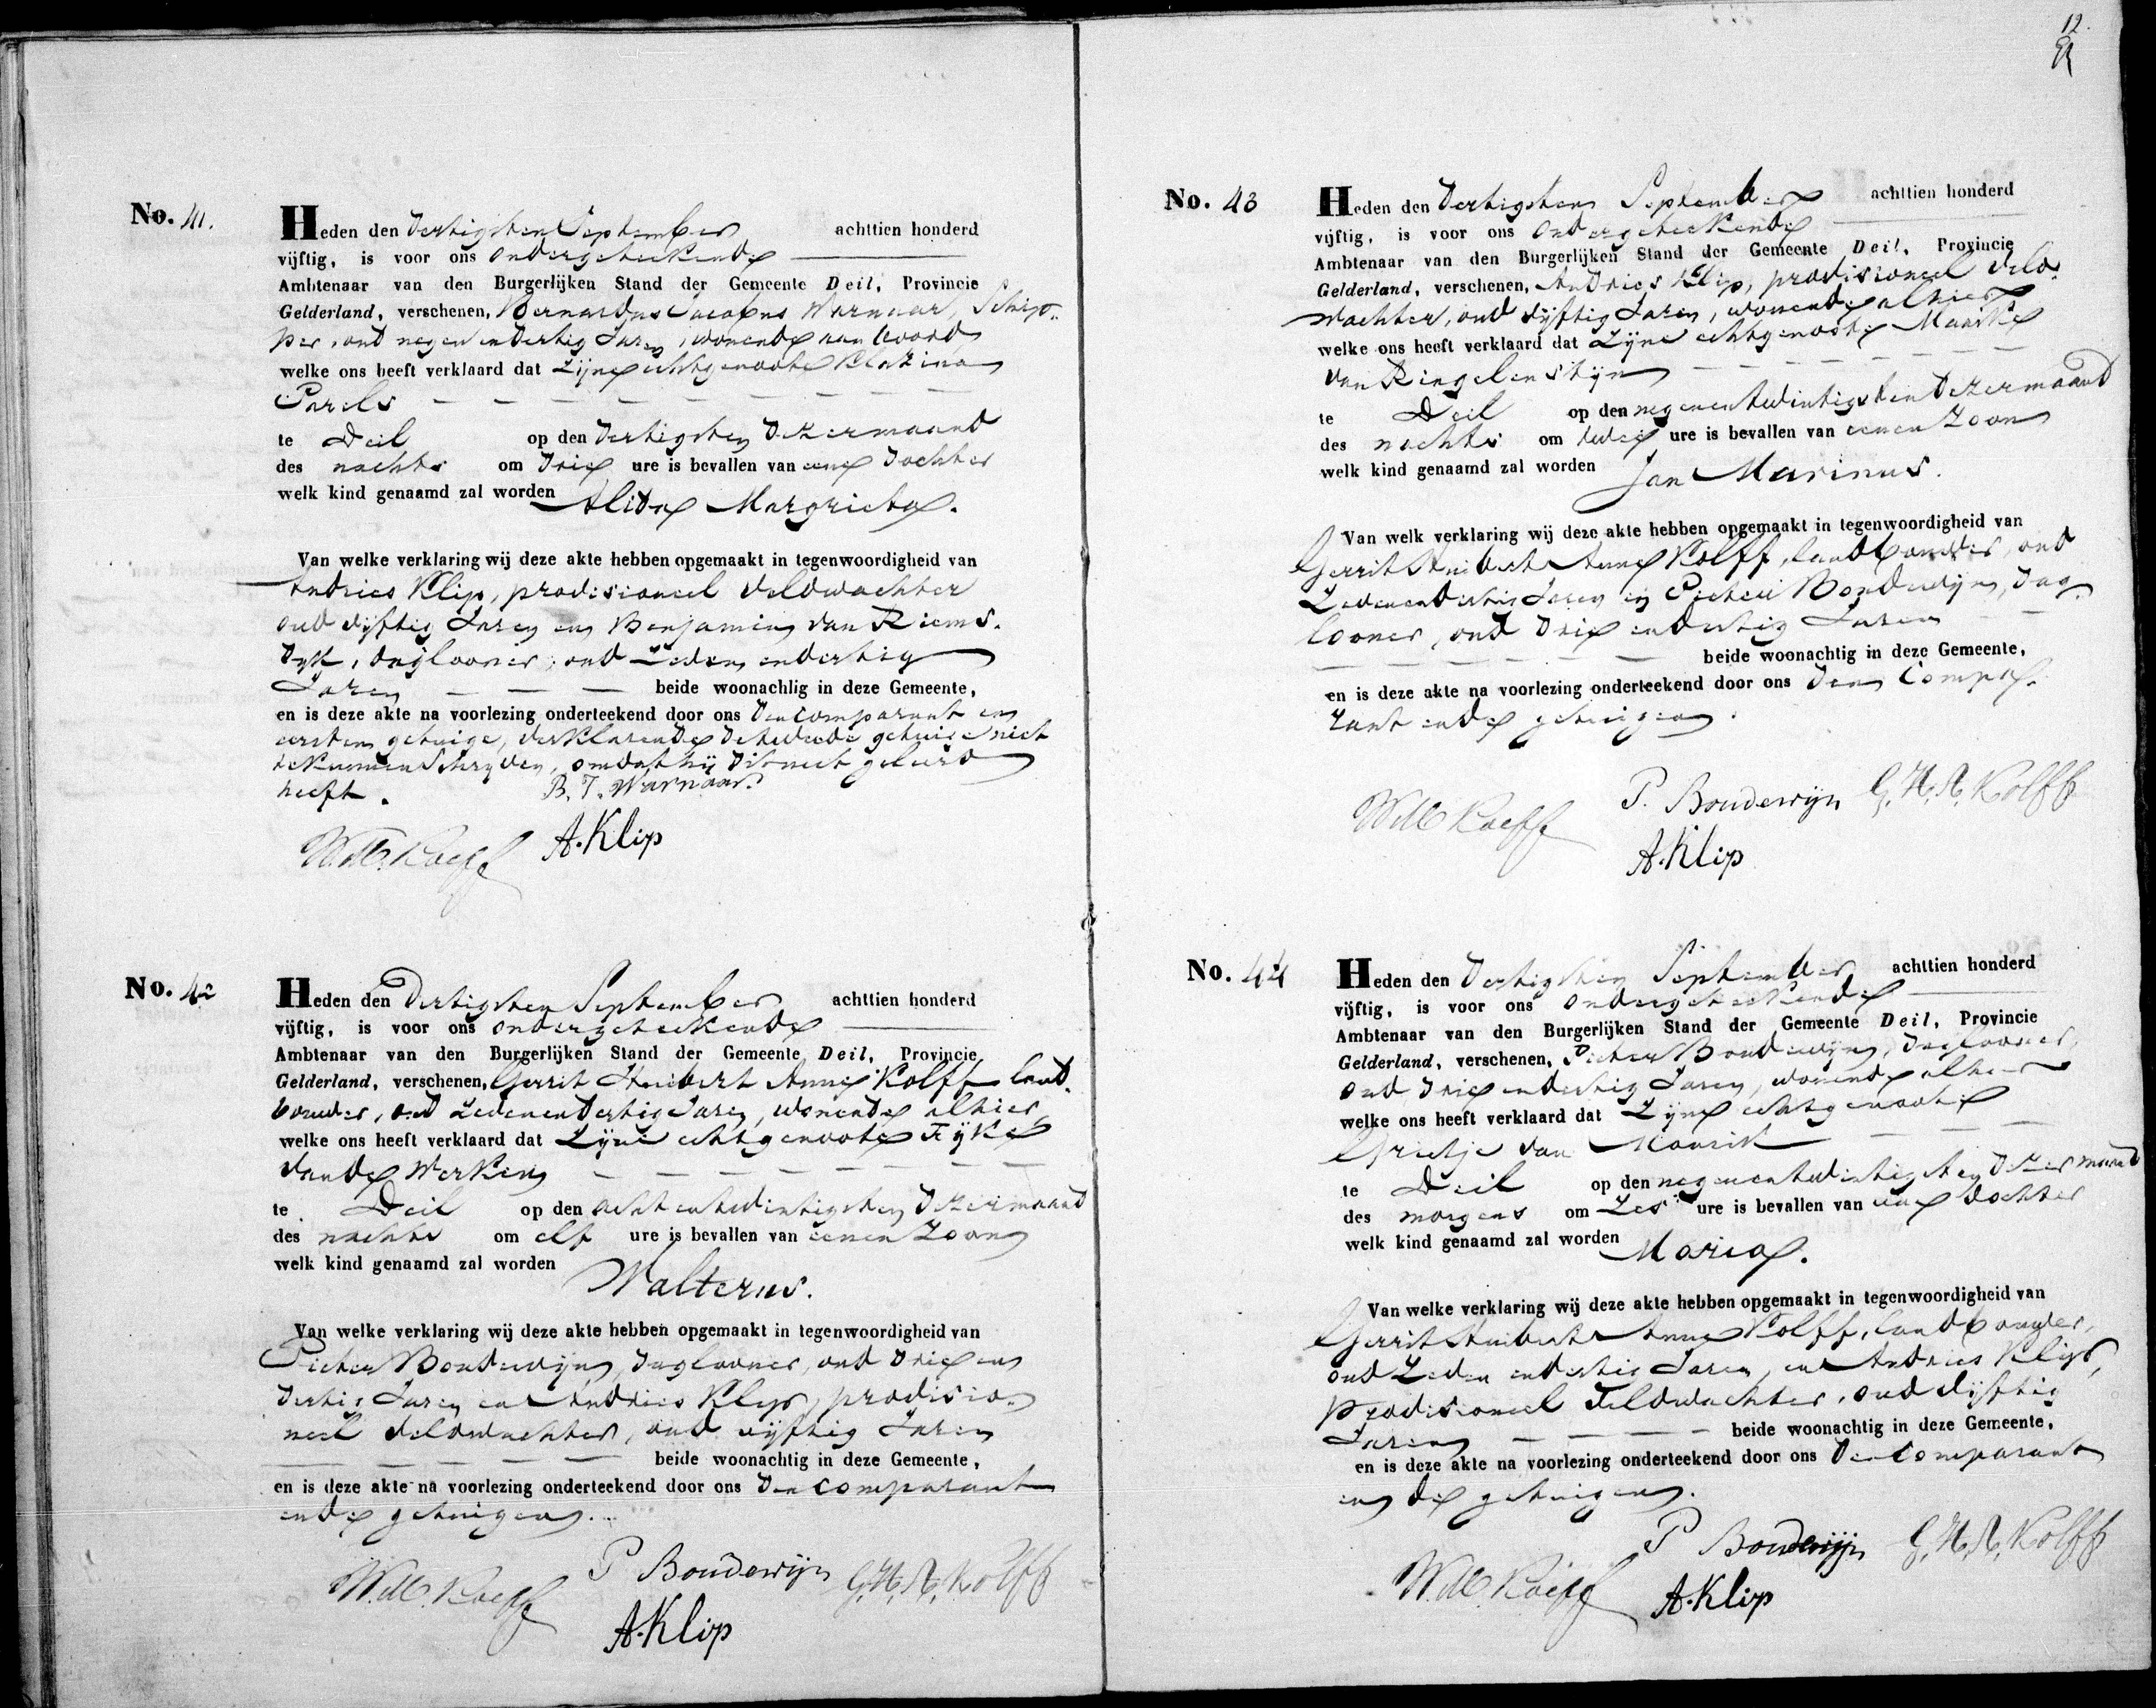 No. 41.
Heden den dertigsten September achttien honderd
vijftig, is voor ons ondergeteekende
Ambtenaar van den Burgerlijken Stand der Gemeente Deil, Provincie
Gelderland, verschenen, Bernardus Jacobus Warnaar, Schip-
per, oud negen en dertig Jaren, wonende aan boord
welke ons heeft verklaard dat Zijne echtgenoote Klazina
Parels
te Deil op den dertigsten dezer maand
des nachts om drie ure is bevallen van eene dochter
welk kind genaamd zal worden
Alida Margrieta.
Van welke verklaring wij deze akte hebben opgemaakt in tegenwoordigheid van
Andries Klip, provisioneel veldwachter
oud vijftig Jaren en Benjamin van Riems-
dyk, daglooner, oud Zeven en dertig
Jaren beide woonachtig in deze Gemeente,
en is deze akte na voorlezing onderteekend door ons den comparant en
eersten getuige, verklarende de tweede getuige niet
te kunnen Schryven, omdat hij dit niet geleerd
heeft. B. J. Warnaar.
A. Klip
No. 42
Heden den Dertigsten September achttien honderd
vijftig, is voor ons ondergeteekende
Ambtenaar van den Burgerlijken Stand der Gemeente Deil, Provincie
Gelderland, verschenen, Gerrit Huibert Anne Kolff land-
bouwer, oud Zeven en dertig Jaren, wonende alhier
welke ons heeft verklaard dat Zijne echtgenoote Fijke
van de Werken
te Deil op den acht en twintigsten dezer maand
des nachts om elf ure is bevallen van eenen Zoon
welk kind genaamd zal worden
Walterus.
Van welke verklaring wij deze akte hebben opgemaakt in tegenwoordigheid van
Pieter Boudewijn, daglooner, oud drie en
dertig Jaren en Andries Klip, provisio-
neel veldwachter, oud vijftig Jaren
beide woonachtig in deze Gemeente,
en is deze akte na voorlezing onderteekend door ons den comparant
en de getuigen.
P Boudewijn G. H. A. Kolff
A. Klip
12.
No. 43
Heden den Dertigsten September achttien honderd
vijftig, is voor ons ondergeteekende
Ambtenaar van den Burgerlijken Stand der Gemeente Deil, Provincie
Gelderland, verschenen, Andries Klip, provisioneel veld-
wachter, oud vijftig Jaren, wonende alhier
welke ons heeft verklaard dat Zijne echtgenoote Maaike
van Ringelenstijn
te Deil op den negenentwintigsten dezer maand
des nachts om twee ure is bevallen van eenen Zoon
welk kind genaamd zal worden
Jan Marinus.
Van welk verklaring wij deze akte hebben opgemaakt in tegenwoordigheid van
Gerrit Huibert Anne Kolff, landbouwer, oud
Zeven en dertig Jaren en Pieter Boudewijn, dag-
looner, oud drie en dertig Jaren
beide woonachtig in deze Gemeente,
en is deze akte na voorlezing onderteekend door ons den Compa-
rant en de getuigen.
P. Boudewijn G. H. A. Kolff
A. Klip
No. 44
Heden den Dertigsten September achttien honderd
vijftig, is voor ons ondergeteekende
Ambtenaar van den Burgerlijken Stand der Gemeente Deil, Provincie
Gelderland, verschenen, Pieter Boudewijn, daglooner,
oud drie en dertig Jaren, wonende alhier
welke ons heeft verklaard dat Zijne echtgenoote
Grietje van Maurik
te Deil op den negenentwintigsten dezer maand
des morgens om Zes ure is bevallen van eene dochter
welk kind genaamd zal worden
Maria.
Van welke verklaring wij deze akte hebben opgemaakt in tegenwoordigheid van
Gerrit Huibert Anne Kolff, landbouwer,
oud Zeven en dertig Jaren, en Andries Klip,
provisioneel veldwachter, oud vijftig
Jaren beide woonachtig in deze Gemeente,
en is deze akte na voorlezing onderteekend door ons den Comparant
en de getuigen.
P Boudewijn G. H. A. Kolff
A. Klip